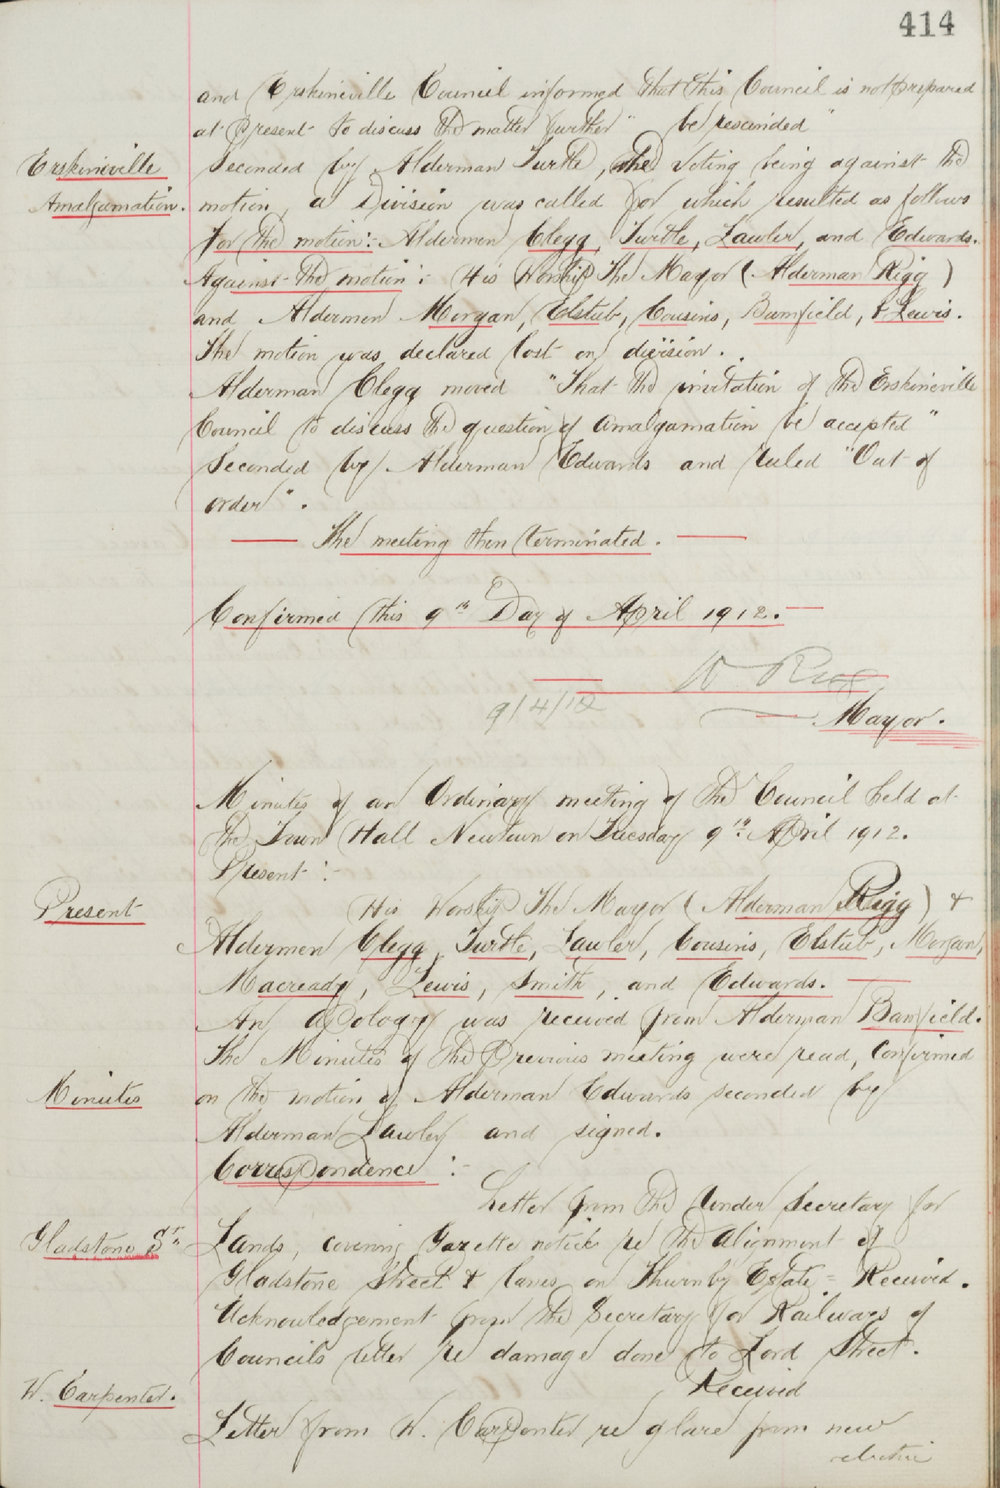 414
and Erskineville Council informed that this Council is not prepared
at present to discuss the matter further" be rescinded"
Erskineville
Amalgamation.
Seconded by Alderman Turtle, the voting being against the
motion, a Division was called for which resulted as follows
For the motion:- Aldermen Clegg, Turtle, Lawler, and Edwards.
Against the motion:- His Worship The Mayor (Alderman Rigg)
and Aldermen Morgan, Elstub, Cousins, Bamfield, & Lewis.
The motion was declared lost on division.
Alderman Clegg moved "That the invitation of the Erskineville
Council to discuss the question of amalgamation be accepted"
Seconded by Alderman Edwards and ruled "Out of
order".
The meeting then terminated.
Confirmed this 9th Day of April 1912.
W Rigg
9/4/12
Mayor.
Minutes of an Ordinary meeting of the Council held at
the Town Hall Newtown on Tuesday 9th April 1912.
Present:-
Present
His Worship The Mayor (Alderman Rigg) &
Aldermen Clegg, Turtle, Lawler, Cousins, Elstub, Morgan,
Macready, Lewis, Smith, and Edwards.
An apology was received from Alderman Bamfield.
Minutes
The Minutes of the Previous meeting were read, Confirmed
on the motion of Alderman Edwards seconded by
Alderman Lawler and signed.
Correspondence:-
Letter from the Under Secretary for
Gladstone St.
Lands, covering Gazette notice re the alignment of
Gladstone Street & lanes on Thurnby Estate = Received.
Acknowledgement from the Secretary for Railways of
Councils letter re damage done to Lord Street.
Received
W. Carpenter.
Letter from W. Carpenter re glare from new
electric